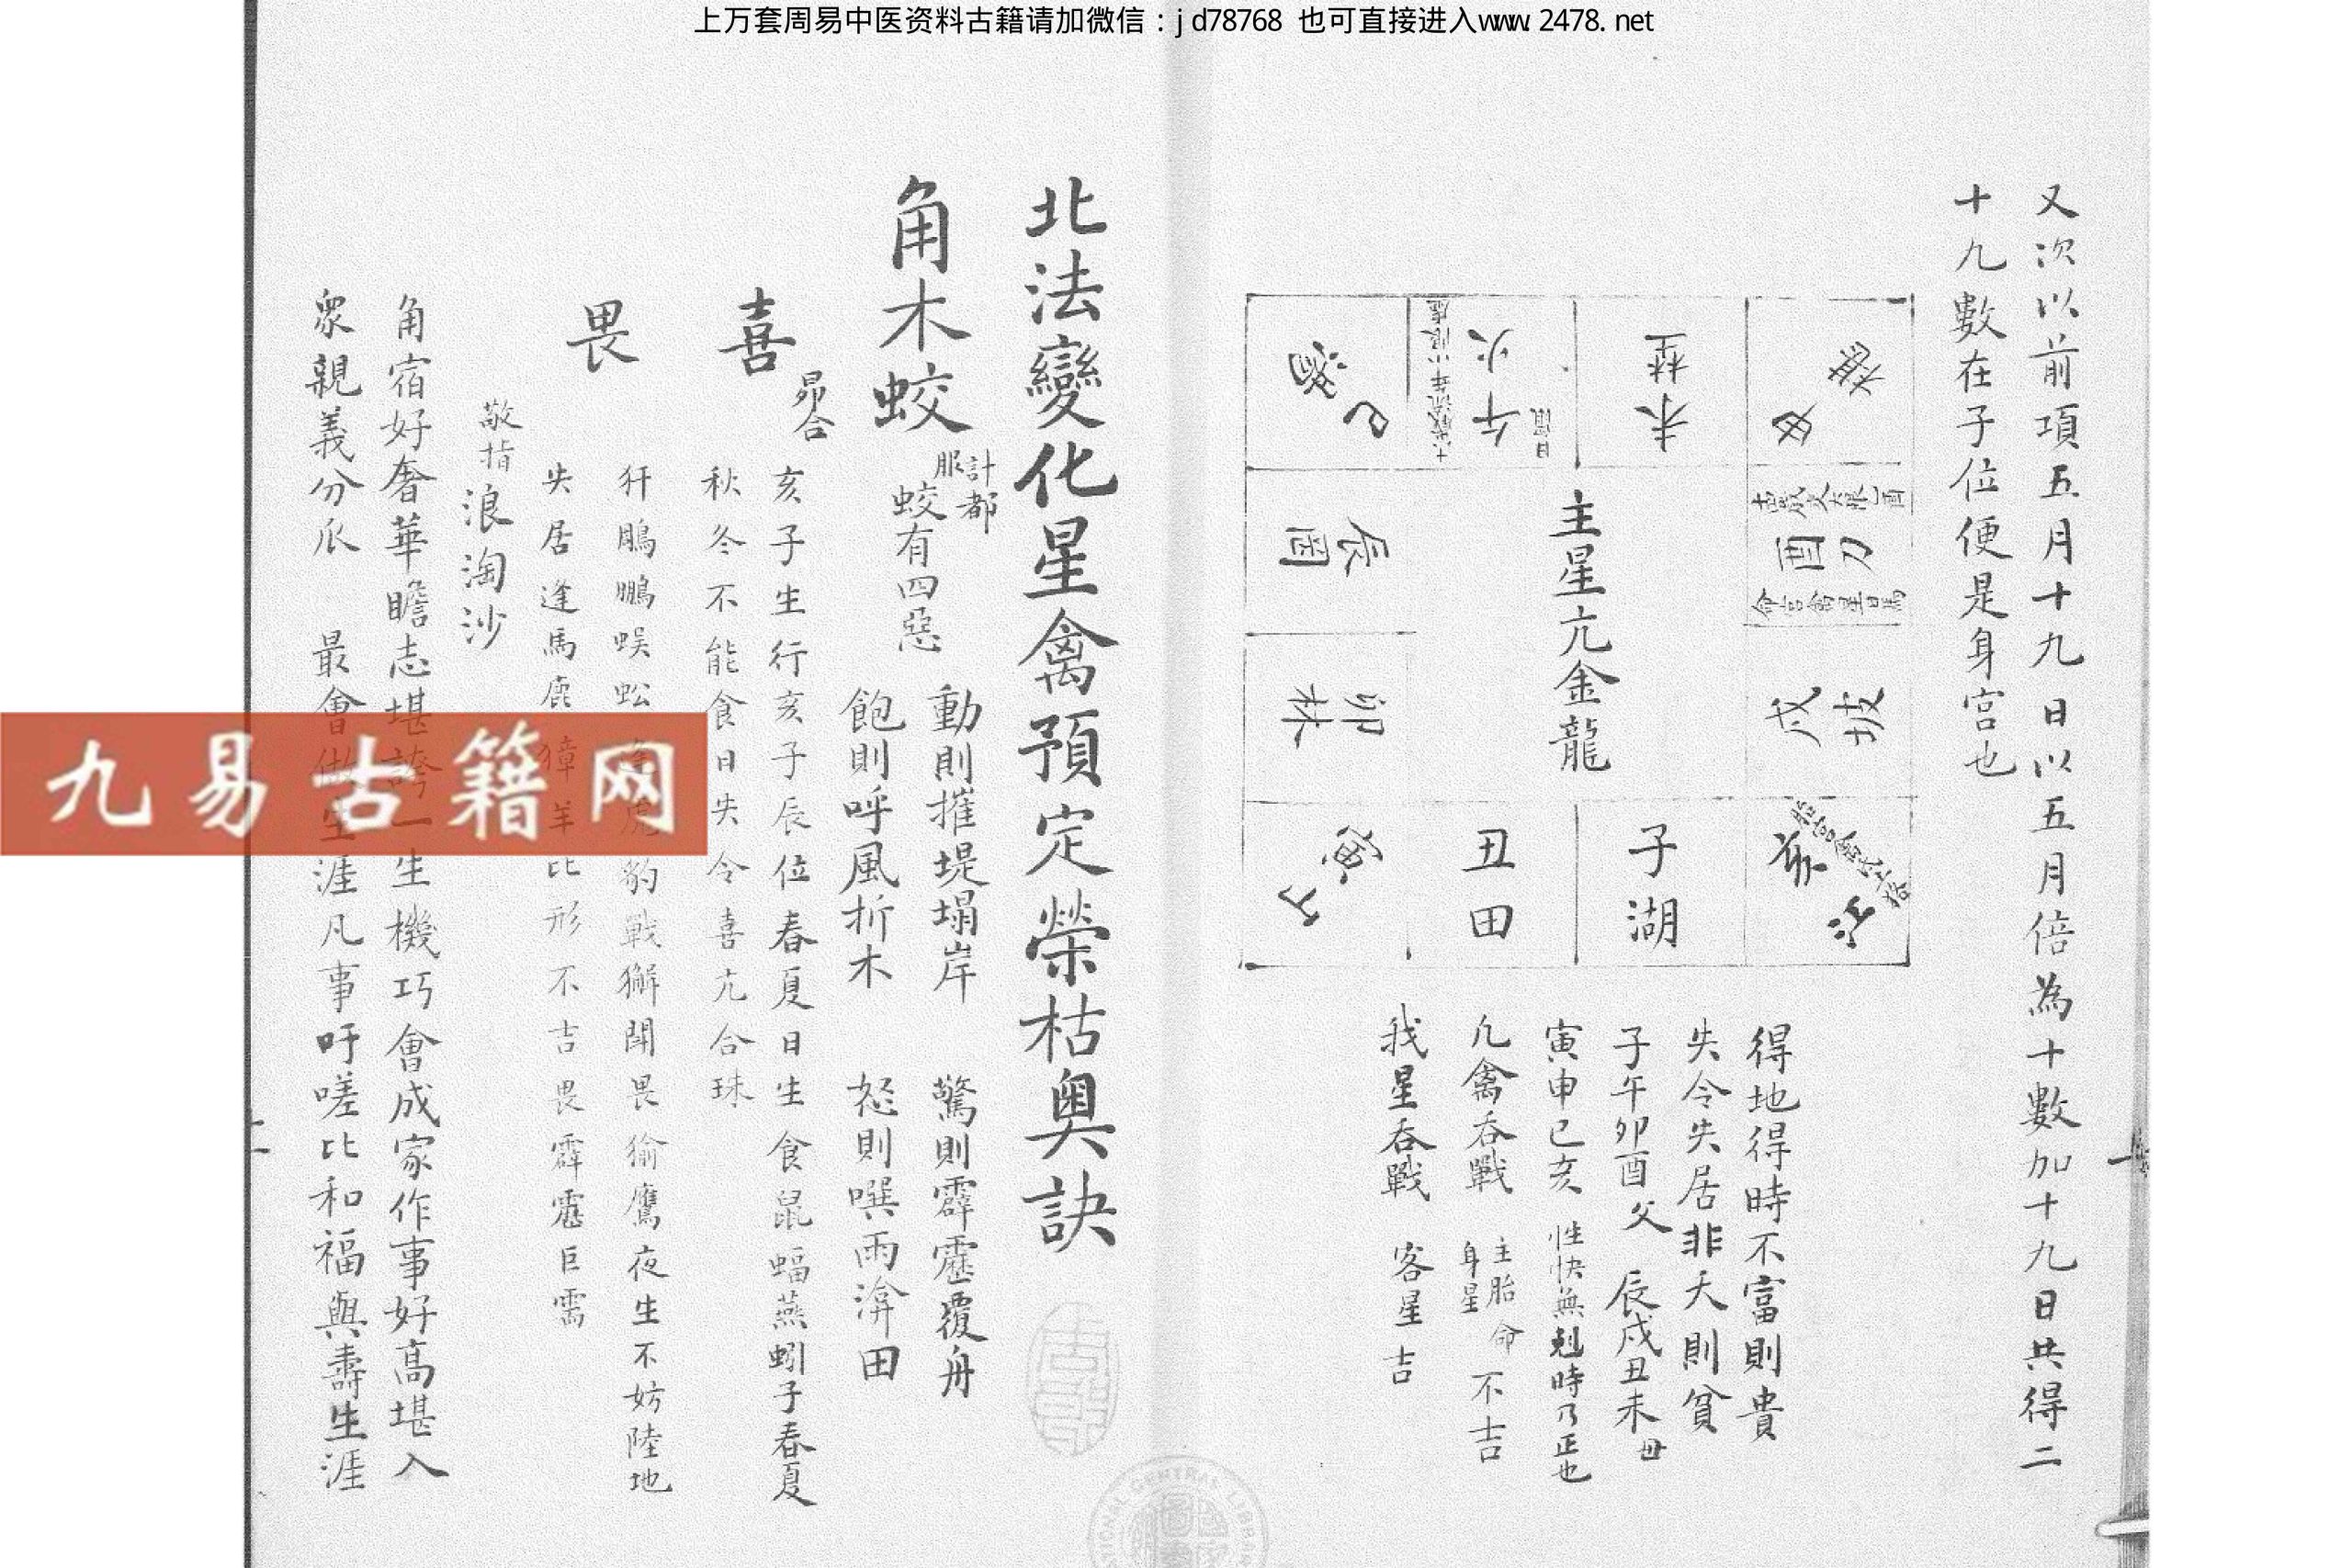 上万套周易中医资料古籍请加微信：jd78768 也可直接进入www.2478.net
又次以前項五月十九日以五月倍為十數加十九日共得二
十九數在子位便是身宮也
未
午火
巳
酉刀
辰
戌坡
卯林
主星亢金龍
亥江
子湖
丑田
寅
得地得時不富則貴
失令失居非夭則貧
子午卯酉父 辰戌丑未母
寅申巳亥 性快無剋時乃正也
凡禽吞戰 主胎命身星 不吉
我星吞戰 客星吉
北法變化星禽預定榮枯奧訣
角木蛟
計都
服
蛟有四惡
動則摧堤塌岸 驚則霹靂覆舟
飽則呼風折木 怒則噀雨渰田
喜
昴合
亥子生行亥子辰位春夏日生食鼠蝠燕蚓子春夏
秋冬不能食日失令喜亢合珠
畏
豹戰獬鬪畏㺄鷹夜生不妨陸地
失居逢馬鹿獐羊比形不吉畏霹靂巨
浪淘沙
角宿好奢華瞻志堪誇一生機巧會成家作事好高堪入
眾親義分瓜 最會做生涯凡事吁嗟比和福與壽生涯
九易古籍网